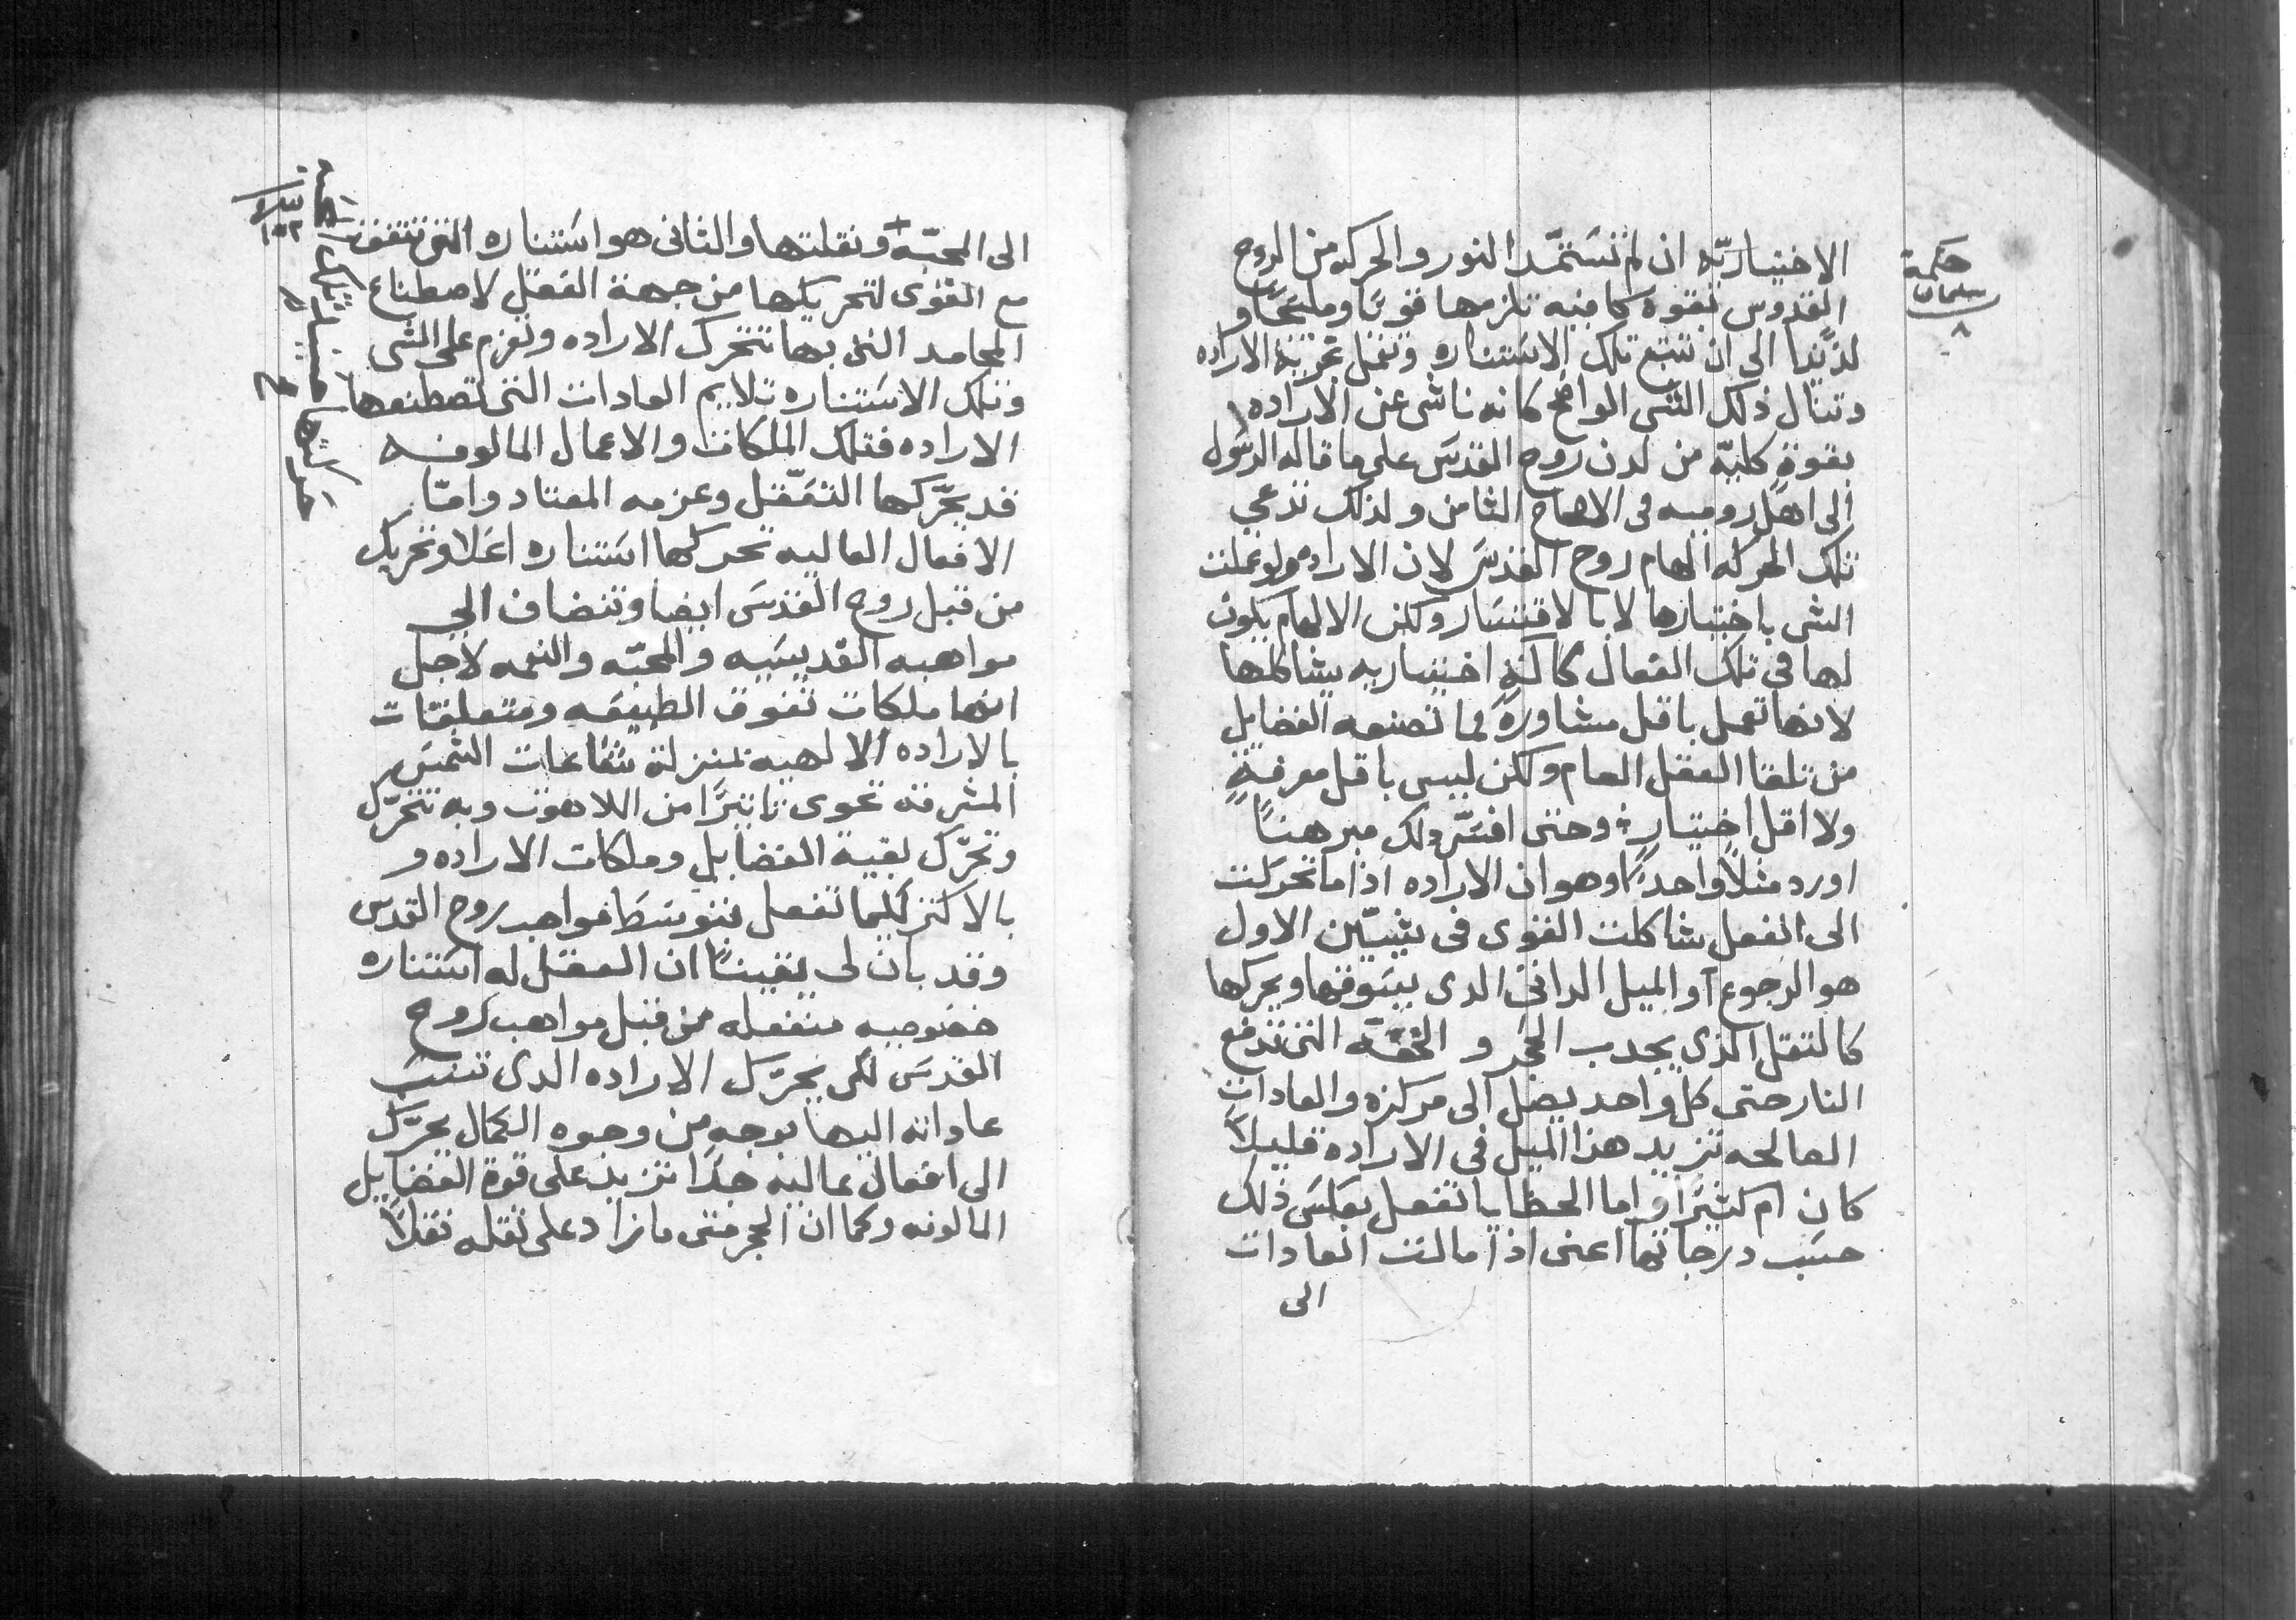 حكمة
سليمان
٨
الاختياريّه ان لم تستمّد النور والحركه من الروح
القدوس بقوة كافيه تلزمها قوتًا ومليحًا و
لذيذا الى ان تتبع تلك الاستناره وتفعل الاراده
وتنال ذلك الشى الواضح كانه ناشى عن الاراده
بقوةٍ كليّه من لدن روح القدس على ما قاله الرسول
الى اهل روميه فى الاصحاح الثامن ولذلك تدعي
تلك الحركه الهام روح القدس لان الاراده ولو عملت
الشى باختيارها لا بالاقتسار ولكن الالهام يكون
لها في تلك الفعال كالةٍ اختياريه يشاكلها
لانها تعمل باقل مشاورة لما تصنعه الفضايل
من تلقا العقل العام ولكن ليس باقل معرفةٍ
ولا اقل اختيارٍ وحتى افسّر ذلك مبرهنًا
اورد مثلاً واحدًا وهو ان الاراده اذا ما تحركت
الى الفعل شاكلت القوى فى شيّين الاول
هو الرجوع او الميل الداتى الدى يسوقها ويحركها
كالتقل الذي يجدب الحجر و الخفّه التى تدفع
النار حتى كل واحد يصل الى مركزه والعادات
الصالحه تزيد هذا الميل فى الاراده قليلاً
كان ام كثيرًا واما الخطايا تفعل بعكس ذلك
حسب درجاتها اعنى اذا مالت العادات
الى
الى المحبّه وتقلتها والثانى هو استناره التى تتفق
مع القوى لتحريكها من جهة العقل لاصطناع
المحامد التى بها تتحرك الاراده وتعزم على الشى
وتلك الاستناره تلايم العادات التى تصطنعها
الاراده فتلك الملكات والاعمال المالوفه
قد يحرّكها التعقّل وعزمه المعتاد وامّا
الافعال العاليه تحركها استناره اعلا وتحريك
من قبل روح القدس ايضا وتنضاف الى
مواهبه القديسيه والمحبّه والنعمه لاجل
انها ملكات تفوق الطبيعه ومتعلقات
بالاراده الالهيه بمنزلة شعاعات الشمس
المشرقه تحوى تاتيرًا من اللاهوت وبه تتحرّك
وتحرّك بقية الفضايل وملكات الاراده و
بالاكتر كلما تفعل بتوسط مواهب روح القدس
وقد بان لى يقينًا ان العقل له استناره
خصوصيه منفعله من قبل مواهب روح
القدس لكى يحرّك الاراده الدى تنسب
عاداته اليها بوجهٍ من وجوه الكمال يحرّك
الى افعال عاليه جدًا تزيد على قوة الفضايل
المالوفه وكما ان الحجر متى ما زاد على تقله تقلاً